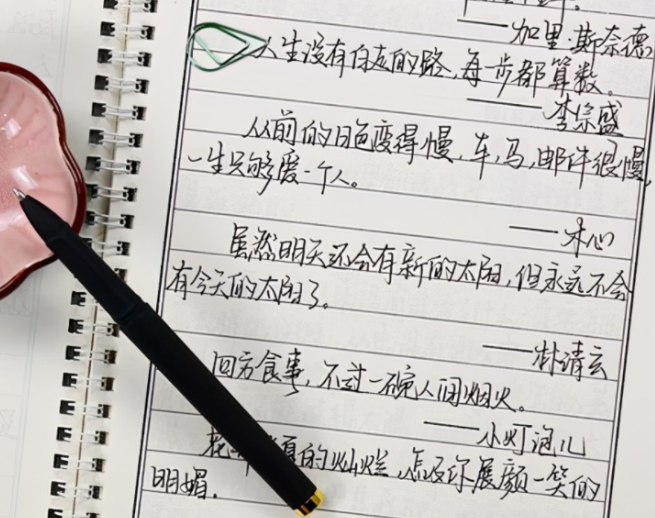 ——加里·斯奈德
人生没有白走的路,每步都算数。
——李宗盛
从前的日色变得慢,车,马,邮件很慢,
一生只够爱一个人。
——木心
虽然明天还会有新的太阳,但永远不会
有今天的太阳了。
——林清玄
四方食事,不过一碗人间烟火。
——小灯泡儿
夏的灿烂,怎及你展颜一笑的
明媚。